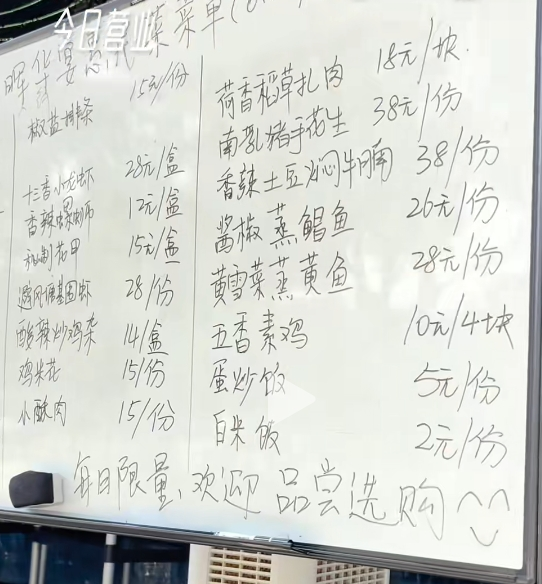 今日营业
菜单(
15元/份
椒盐排条
十三香小龙虾 28元/盒
香辣螺蛳 12元/盒
秘制花甲 15元/盒
避风塘基围虾 28/份
酸辣炒鸡杂 14/盒
鸡米花 15/份
小酥肉 15/份
荷香稻草扎肉 18元/块
南乳猪手花生 38元/份
香辣土豆焖牛腩 38/份
酱椒蒸鲳鱼 26元/份
黄雪菜蒸黄鱼 28元/份
五香素鸡 10元/4块
蛋炒饭 5元/份
白米饭 2元/份
每日限量,欢迎品尝选购